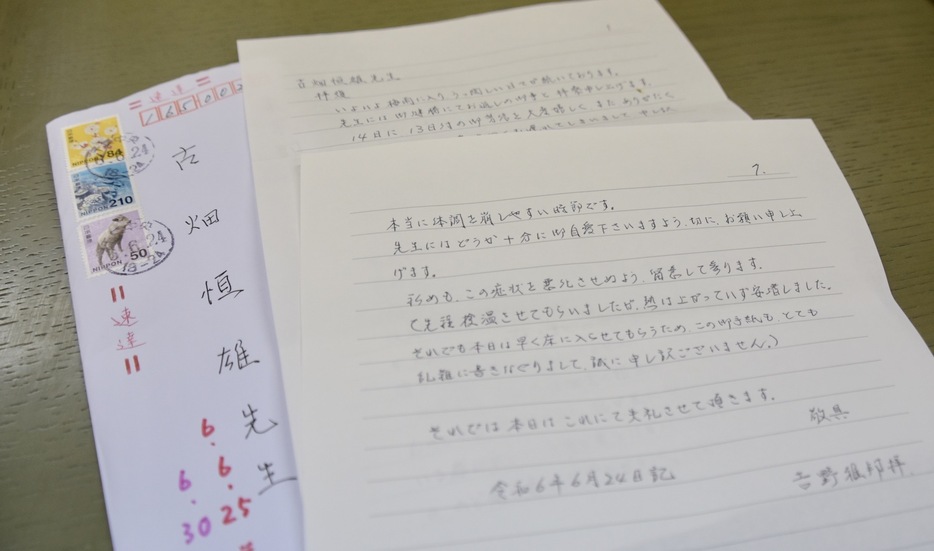 速達
165002
NIPPON 84
NIPPON 210
NIPPON 50
速達
古畑恒雄先生
6.6.25
6.30
1
古畑恒雄先生
拝復
いよいよ梅雨に入り、うっ陶しい日々が続いております。
先生には御健勝にてお過しの御事と拝察申し上げます。
14日に13日付の御芳信を大変嬉しく、また ありがたく
7.
本当に体調を崩しやすい時節です。
先生にはどうか十分に御自愛下さいますよう、切に、お願い申し上
げます。
私めも、この症状を悪化させぬよう、留意して参ります。
(先程検温させてもらいましたが、熱は上がっていず安堵しました。
それでも本日は早く床に入らせてもらうため、この御手紙も、とても
乱雑に書きなぐりまして、誠に申し訳ございません。)
それでは本日は これにて失礼させて頂きます。
敬具
令和6年6月24日記
吉野雅邦拝